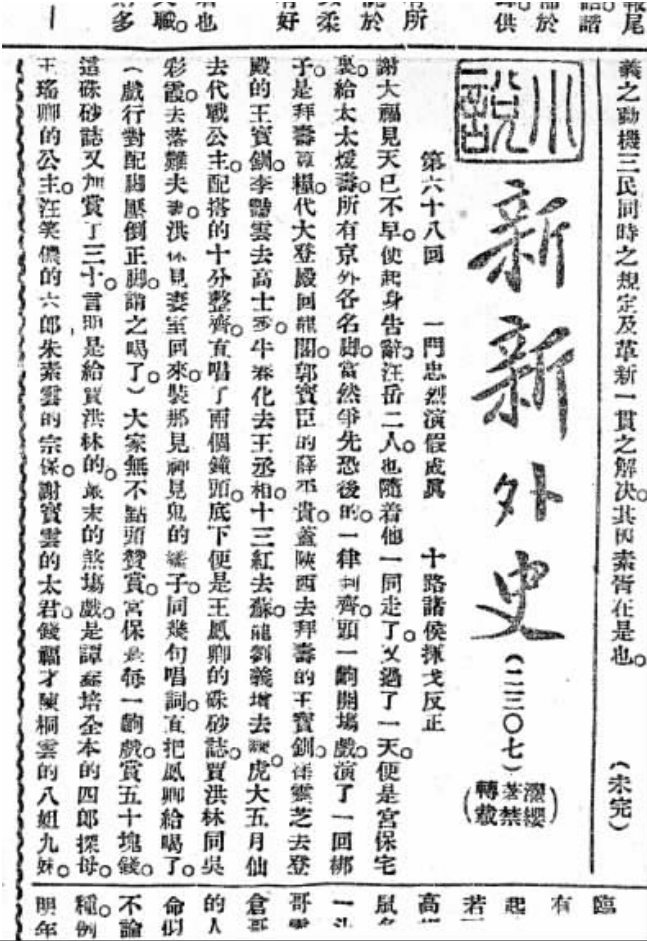 義之動機三民同時之規定及革新一貫之解決。其因素胥在是也。
(未完)
小說
新新外史
(二三〇七)
濯纓著
禁轉載
第六十八回 一門忠烈演假成眞 十路諸侯揮戈反正
謝大福見天已不早。便起身告辭。汪岳二人。也隨着他一同走了。又過了一天。便是宮保宅
裏給太太煖壽。所有京外各名脚。當然爭先恐後的。一律到齊。頭一齣開塲戲。演了一回綁
子。是拜壽算糧。代大登殿回龍閣。郭寶臣的薛平貴。蓋陝西去拜壽的王寶釧。 靈芝去登
殿的王寶釧。李豔雲去高士 。牛春化去王丞相。十三紅去蘇龍。劉義增去魏虎。大五月仙
去代戰公主。配搭的十分整齊。直唱了兩個鐘頭。底下便是王鳳卿的硃砂誌。賈洪林同吳
彩霞。去落難夫妻。洪林見妻室回來。裝那見神見鬼的 子。同幾句唱詞。直把鳳卿給喝了。
(戲行對配脚壓倒正脚。謂之喝了)大家無不點頭贊賞。宮保是每一齣戲。賞五十塊錢。
這硃砂誌又加賞了三十。言明是給賈洪林的。最末的煞塲戲。是譚鑫培全本的四郎探母。
王瑤卿的公主。汪笑儂的六郎朱素雲的宗保。謝寶雲的太君。錢福才陳桐雲的八姐九妹。